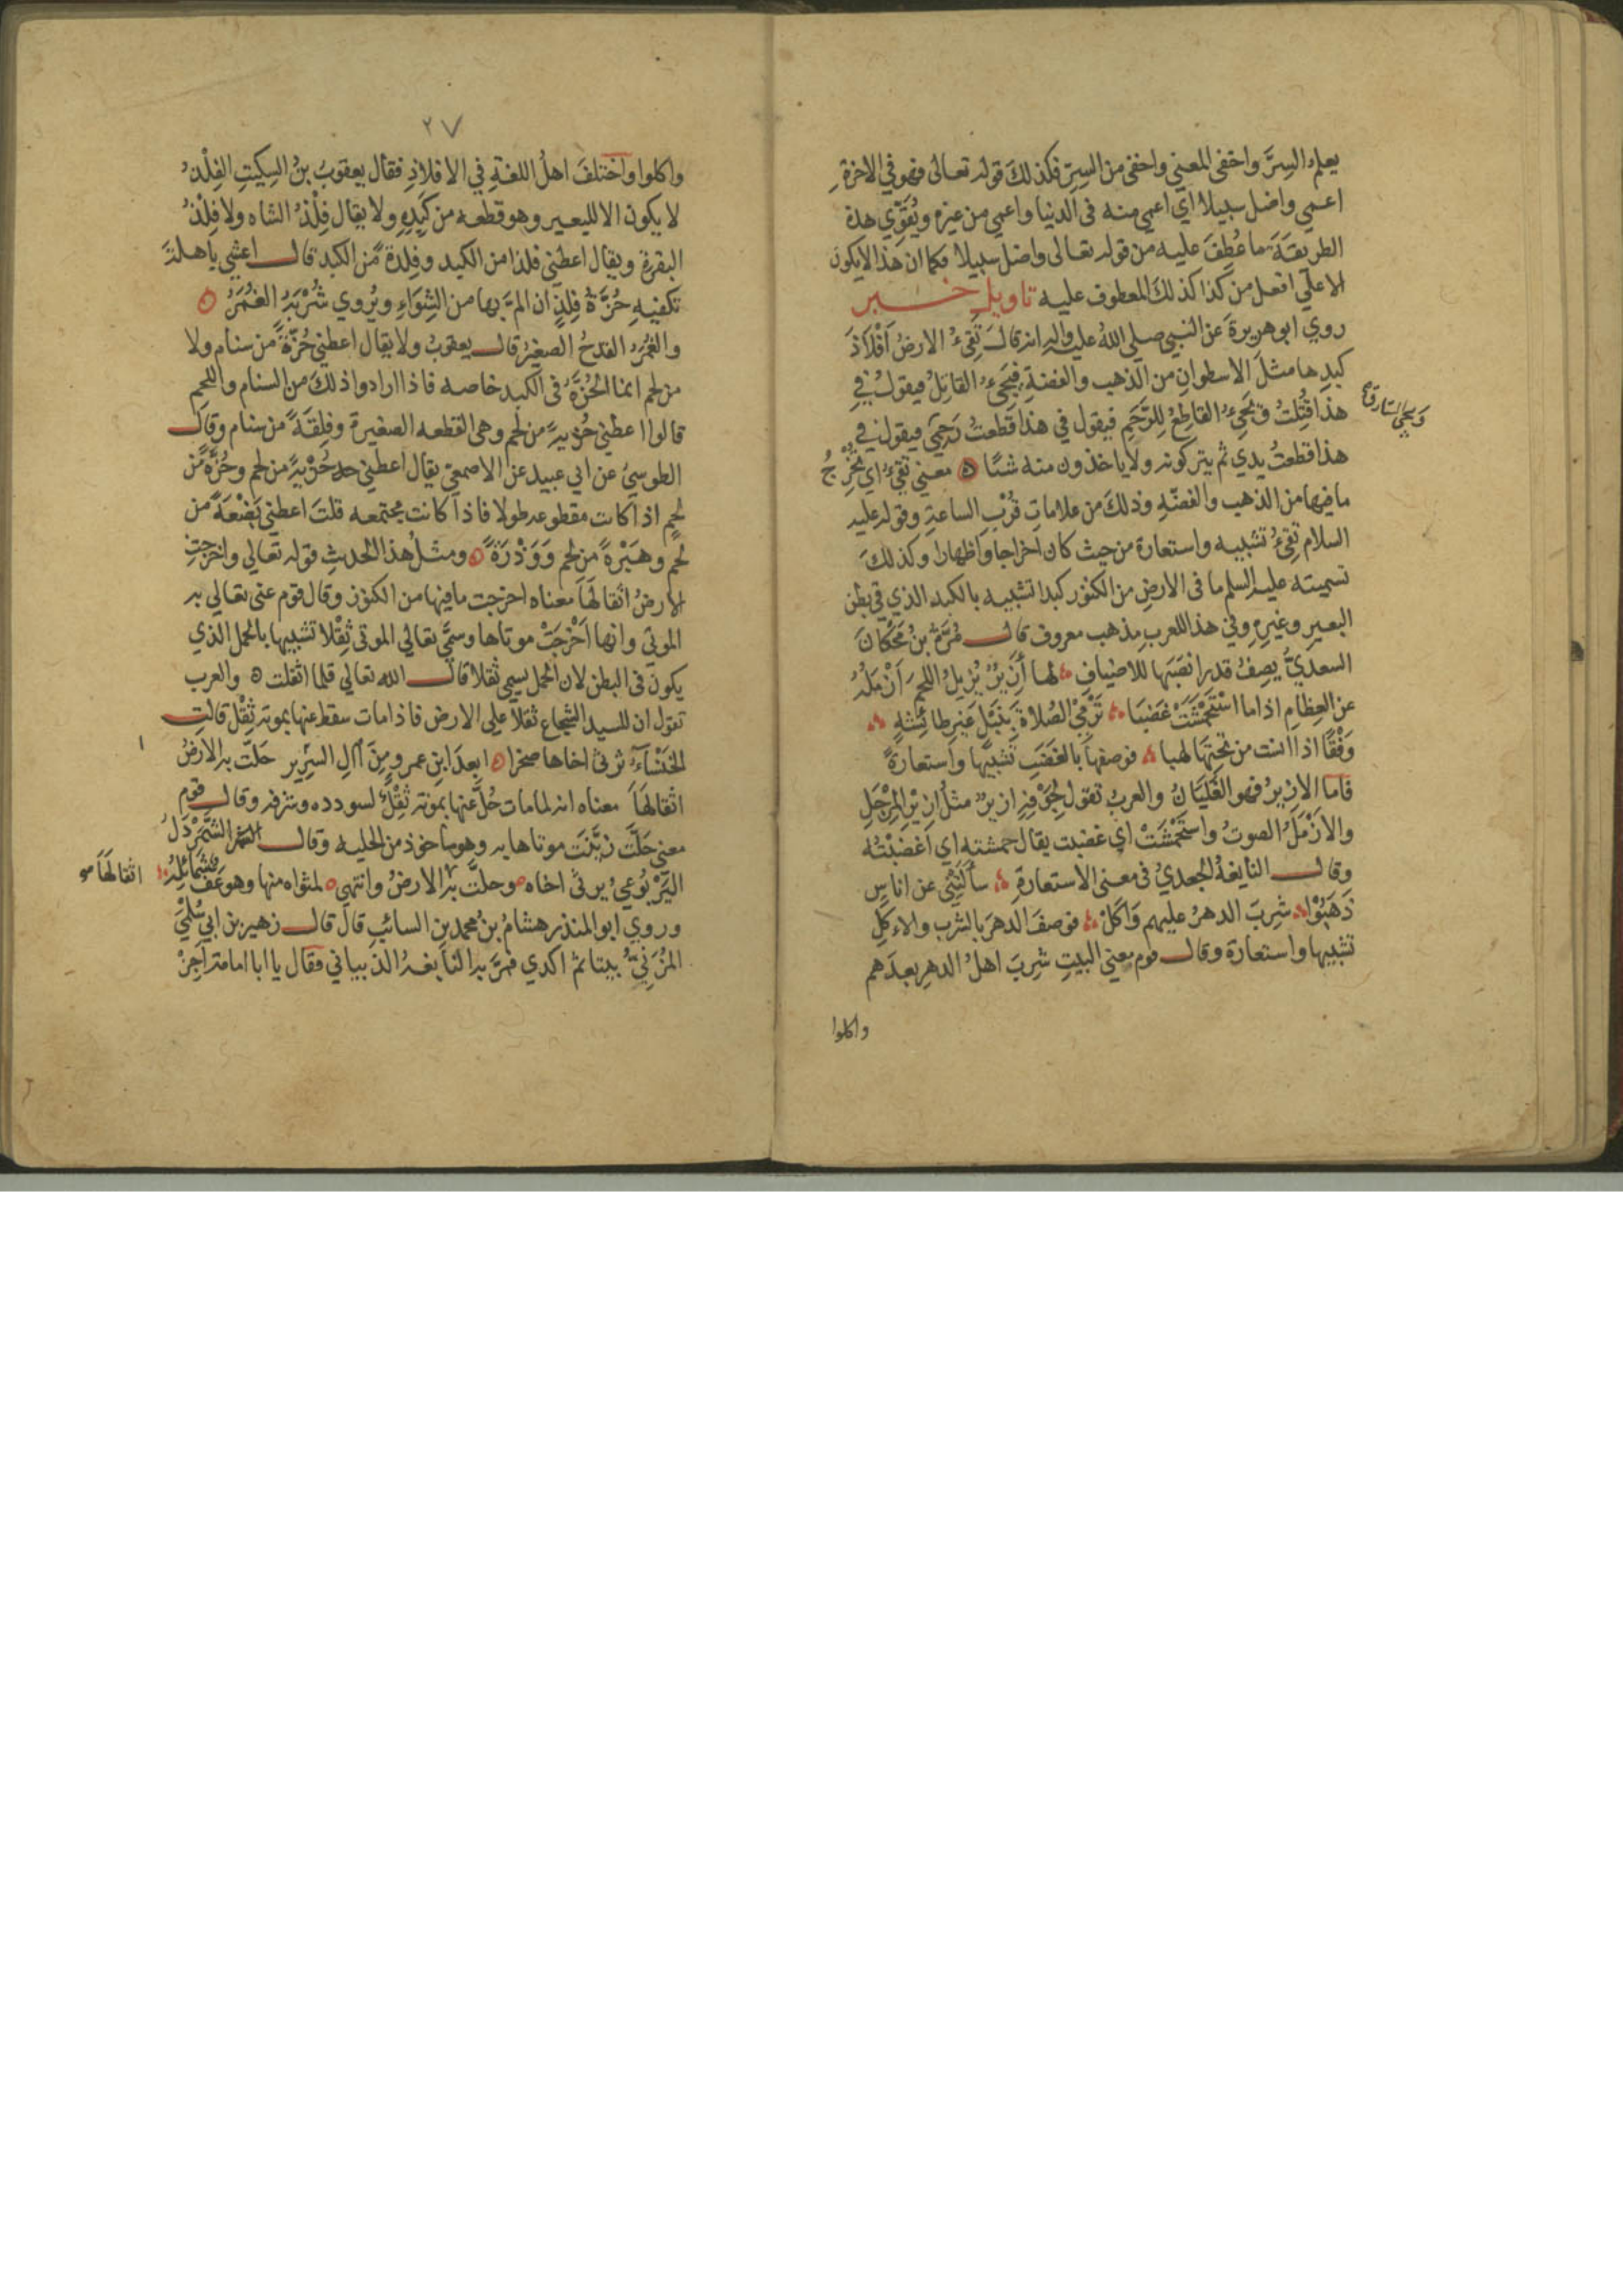 يعلم السِرَّ واخفى المعني واخفى من السِرّ فكذلكَ قوله تعالى فهو في الاخرةِ
اعمي واضل سبيلا اي اعمي منه فى الدنيا واعمي من غيره ويُقَوِّي هذه
الطريقَةَ ما عُطِفَ عليه من قوله تعالى واضل سبيلا فكما ان هذا لا يكون
الا علي افعل من كذا كذلكَ المعطوف عليه تاويل خبر
روي ابو هريرةَ عن النبي صلى اللهُ عليه واله انه قالَ تَقىءُ الارضُ اَفْلَاذَ
كبدِها مثلَ الاسطوانِ من الذهب والفضةِ فيَجىءُ القاتِلُ فيقولُ في
هذا قَتَلتُ ويَجىءُ القاطِعُ لِلرَّحِمِ فيقول في هذا قطعتُ رَحِمي فيقولُ في
ويجي السارق
هذا قطعتُ يدي ثم يتركونه ولا ياخذون منه شئًا ه معني تقىءُ اي تُخْرِجُ
ما فيها من الذهب والفضّهِ وذلكَ من علاماتِ قُرْبِ الساعةِ وقوله عليه
السلام تَقِىءُ تشبيه واستعارة من حيث كان اخراجا واظهارا وكذلكَ
تسميته عليه السلم ما فى الارضِ من الكنوز كبدا تشبيه بالكبد الذي في بطن
البعيرِ وغيرِهِ وفي هذا للعرب مذهب معروف قالـ مُرَّةُ بنُ مَحْكَانَ
السعديُّ يصِفُ قدرا نصَبَها للاضيافِ لها أَزِيزٌ يُزيلُ اللحمَ اَزْمَلُهُ
عن العِظامِ اذا ما اسْتَحْمَشَتْ غَضَبَا تَرْمى الصُلاةَ بِنَبْلٍ غَيرِ طائشَهٍ
وَفْقًا اذا انست من تحتِها لهبا فوصفها بالغَضَبِ تَشبيها واستعارةً
فاما الازِيزُ فهو الغَلَيَانُ والعربُ تقول لجوْفِهِ ازيزٌ مثلُ ازِيزِ المِرْجَلِ
والاَزْمَلُ الصوتُ واستَحْمَشَتْ اي غضبت يقال حمشته اي اَغضَبْتُه
وقالـ النابغةُ الجعديُ فى معنى الاستعارةِ سأَلَتْنِى عن اناسٍ
ذَهَبُوْا شرِبَ الدهرُ عليهم وَاَكَلْ فوصفَ الدهرَ بالشرب والاءكلِ
تشبيها واستعارة وقالـ قوم معني البيتِ شرِبَ اهلُ الدهرِ بعدَهم
واكلوا
٢٧
واكلوا واختلفَ اهلُ اللغةِ في الافلاذِ فقال يعقوبُ بنُ السِكيتِ الفِلْذُ
لا يكون الا للبعير وهو قطعه من كَبِدِهِ ولا يقال فِلْذُ الشاه ولا فِلْذُ
البقرةِ ويقال اعطني فلذا من الكبد وفِلذةً من الكبد قالـ اعشي باهلةَ
تكفيهِ حُزَّةُ فِلْذٍ ان المَّ بها من الشِوَاءِ ويُروي شُرْبَهُ الغُمَرُ ه
والغُمَرُ القدحُ الصغيرُ قالـ يعقوبُ ولا يقال اعطني حُزّةً من سنام ولا
من لحم انما الحُزَّةُ فى الكبد خاصه فاذا ارادوا ذلكَ من السنام واللحم
قالوا اعطني حُذيةً من لحم وهى القطعه الصغيرة وفِلقَةً من سنام وقالـ
الطوسيُ عن ابي عبيد عن الاصمعيّ يقال اعطني حُذْيةً من لحم وحُزَّةً من
لحمٍ اذا كانت مقطوعه طولا فاذا كانت مجتمعه قلتَ اعطني بَضْعَةً من
لحم وهَبْرةً من لحم وَوَذْرَةً ه ومثلُ هذا الحديثِ قوله تعالي واخرجتِ
الارضُ اثقالَهَا معناه اخرجت ما فيها من الكنوز وقال قوم عنى تعالي به
الموتى وانها اَخْرَجَتْ موتاها وسمَّي تعالي الموتى ثِقْلا تشبيها بالحمل الذي
يكون فى البطن لان الحمل يسمى ثقلا قالـ الله تعالي فلما اثقلت ه والعرب
تقول ان للسيد الشجاع ثقلا علي الارض فاذا مات سقط عنها بموته ثِقْل قالت
الخَنْسَآءُ ترثى اخاها صخرا ه ابعدَ ابنِ عمرٍو مِنَ آلِ الشرِيدِ حَلّت به الارضُ
اثقالَهَا معناه انه لما مات حُلَّ عنها بموته ثِقْلٌ لسودده وشرفه وقالـ قوم
معنى حَلّتْ زيَّنَت موتاها به وهو ماخوذ من الحليه وقالـ الشَّمَرْدَلُ
اليَرْبُوعيُ يرثى اخاه وحلَّت به الارضُ وانتهي لمثواه منها وهو عَفٌّ شمائلُه
اثقالَهَا
وروي ابو المنذر هشامُ بنُ محمدِ بنِ السائبِ قال قالـ زهيرُ بن ابي سُلْمَي
المُزَنِيُّ بيتا ثم اكدي فمَرَّ به النابغهُ الذبياني فقال يا ابا امامة اَجِزْ